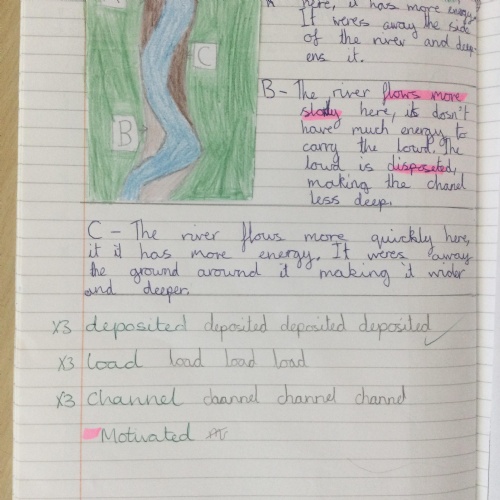 A
here, it has more energy
C
It weres away the side
of the river and deep-
ens it.
B
B - The river flows more
slolly here, it dosn't
have much energy to
carry the lowd. The
lowd is disposited,
making the chanel
less deep.
C - The river flows more quickly here,
it it has more energy. It weres away
the ground around it making it wider
and deeper.
x3 deposited deposited deposited deposited
x3 Load load load load
x3 Channel channel channel channel
Motivated